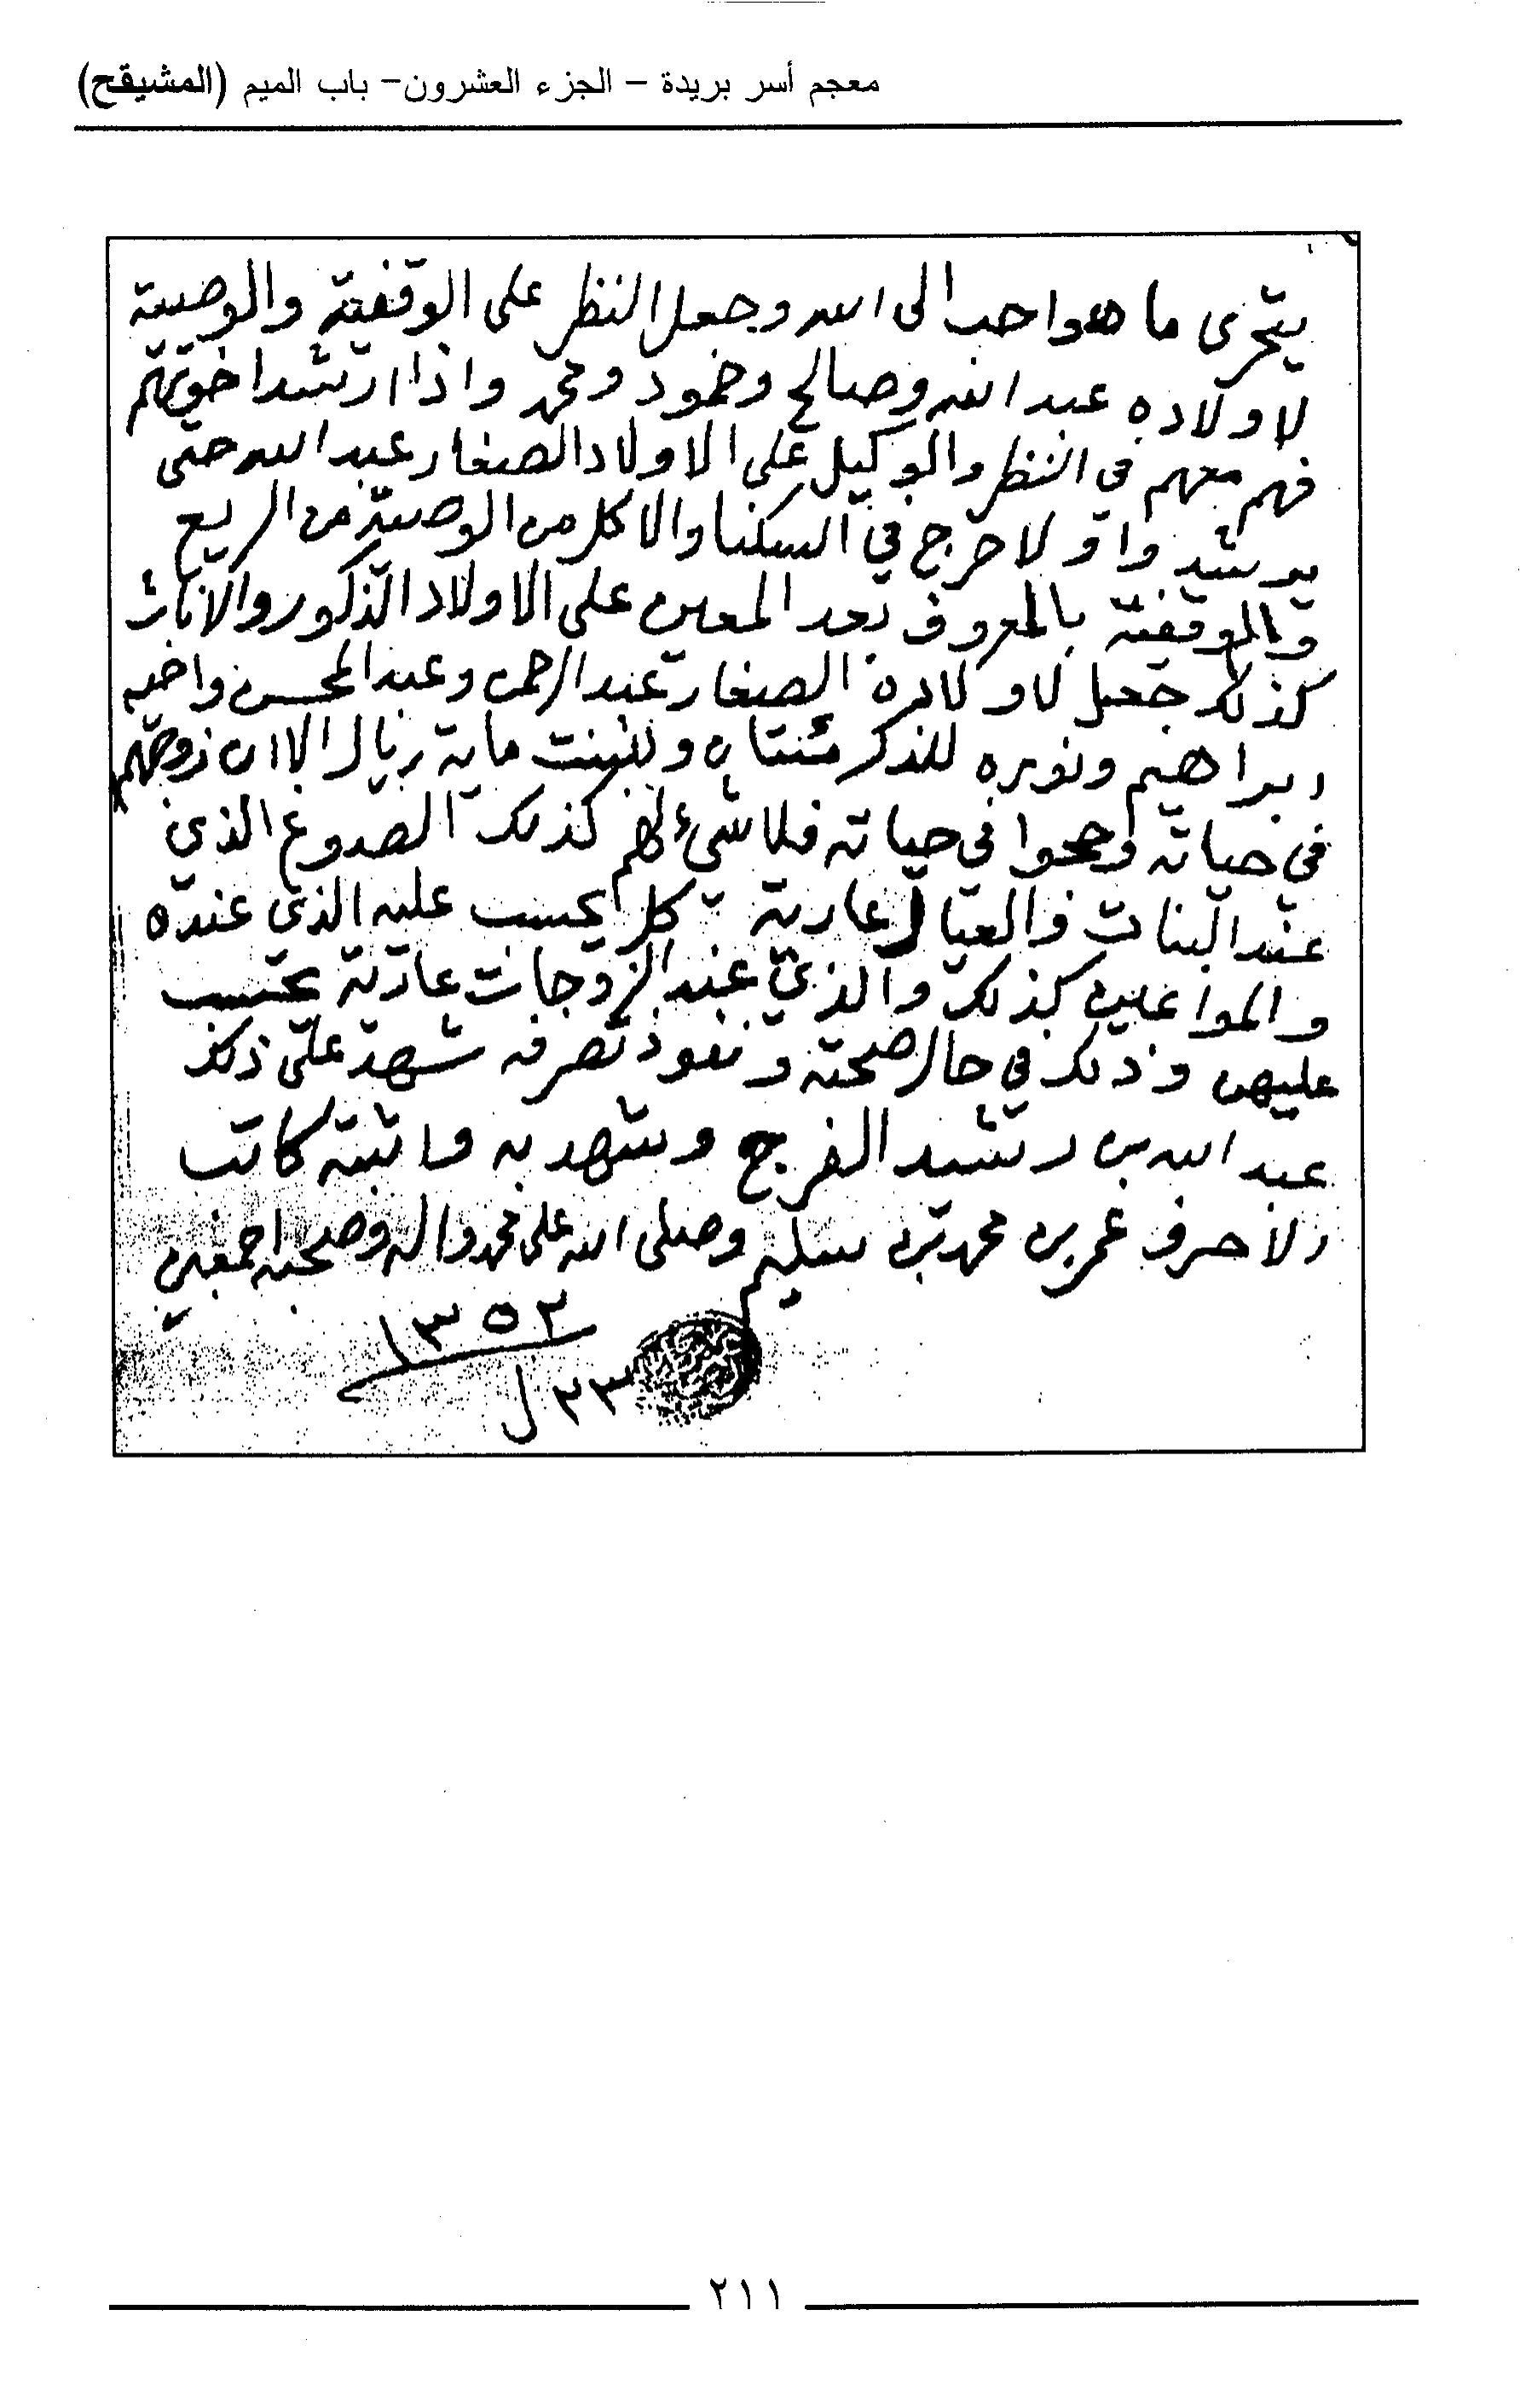 معجم أسر بريدة – الجزء العشرون– باب الميم (المشيقح)
يتحرى ما هو احب الى الله وجعل النظر على الوقفية والوصية
لاولاده عبد الله وصالح وحمود ومحمد واذا ارشد اخوتهم
فهم معهم في النظر والوكيل على الاولاد الصغار عبد الله حتى
يرشدوا ولا حرج في السكنا والاكل من الوصية من الريع
والوقفية بالمعروف بعد المعين على الاولاد الذكور والاناث
كذلك جعل لاولاده الصغار عبد الرحمن وعبد المحسن واخيه
ابراهيم ونوره للذكر مئتان وللبنت ماية ريال الا ان زوجهم
في حياته وحجوا في حياته فلا شيء لهم كذلك الصوغ الذي
عند البنات والعيال عارية كل يحسب عليه الذي عنده
والمواعين كذلك والذي عند الزوجات عارية يحتسب
عليهن وذلك في حال صحته ونفوذ تصرفه شهد على ذلك
عبد الله بن رشيد الفرج وشهد به واثبته كاتب
الاحرف عمر بن محمد بن سليم وصلى الله على محمد واله وصحبه اجمعين
١٣٥٢
٢٣ ل
٢١١